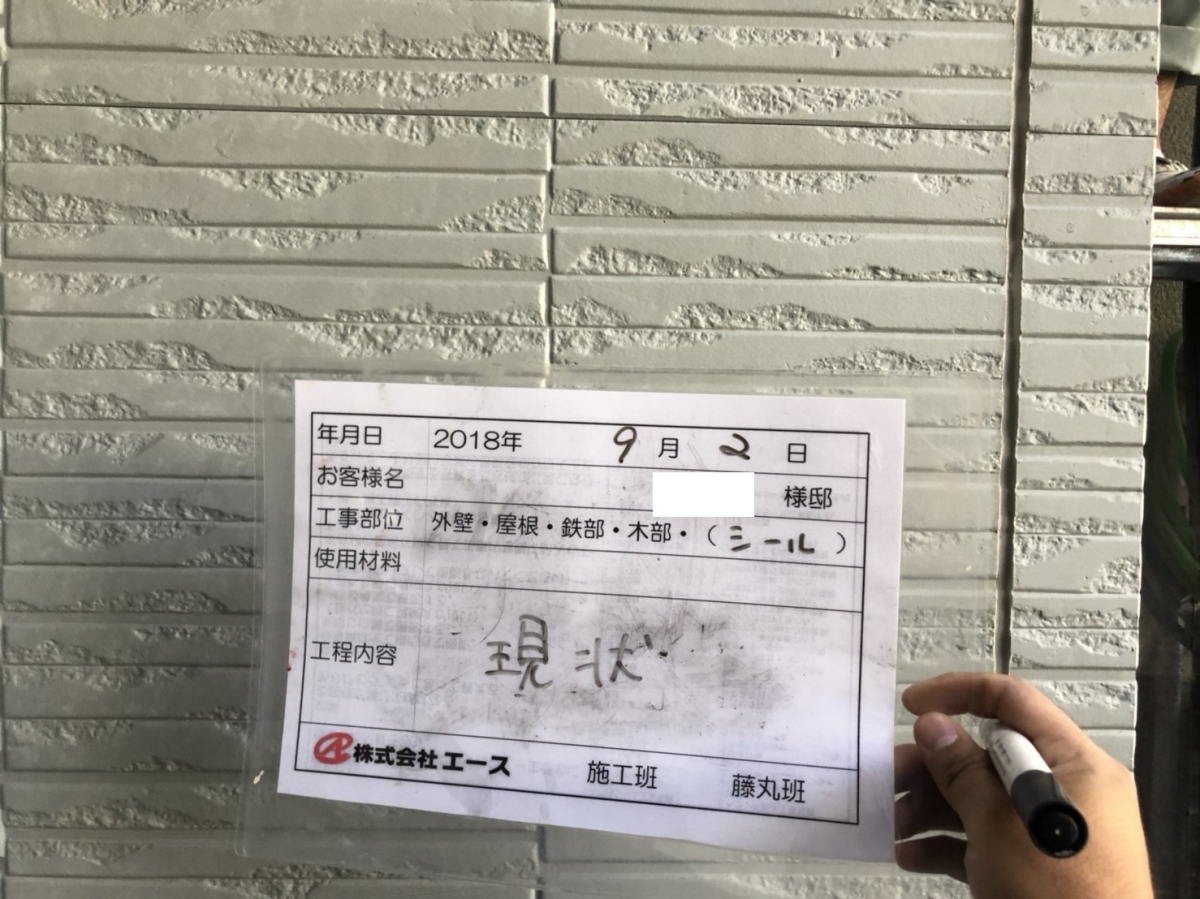 年月日 2018年 9 月 2 日
お客様名 様邸
工事部位 外壁・屋根・鉄部・木部・（シール）
使用材料
工程内容 現状
株式会社エース 施工班 藤丸班